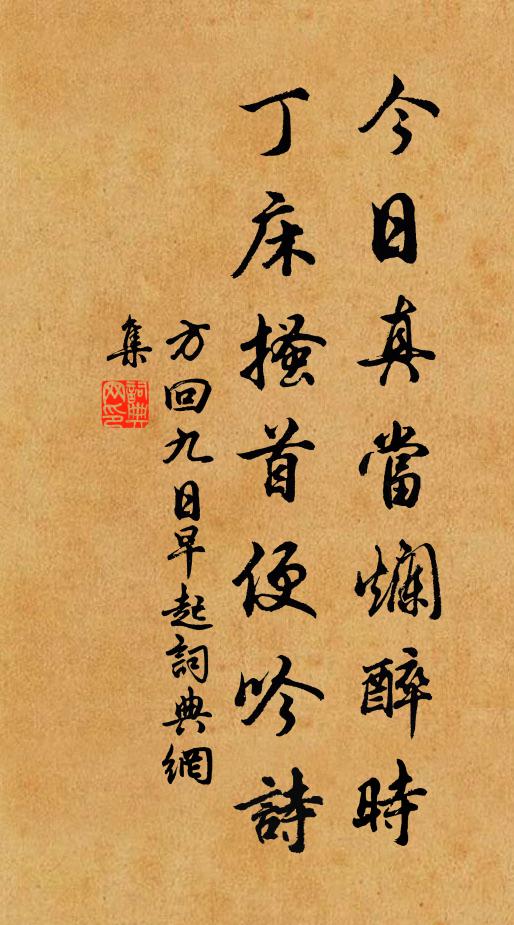 今日真當爛醉時
丁床搔首便吟詩
方回九日早起詞典網
集
詞典網印